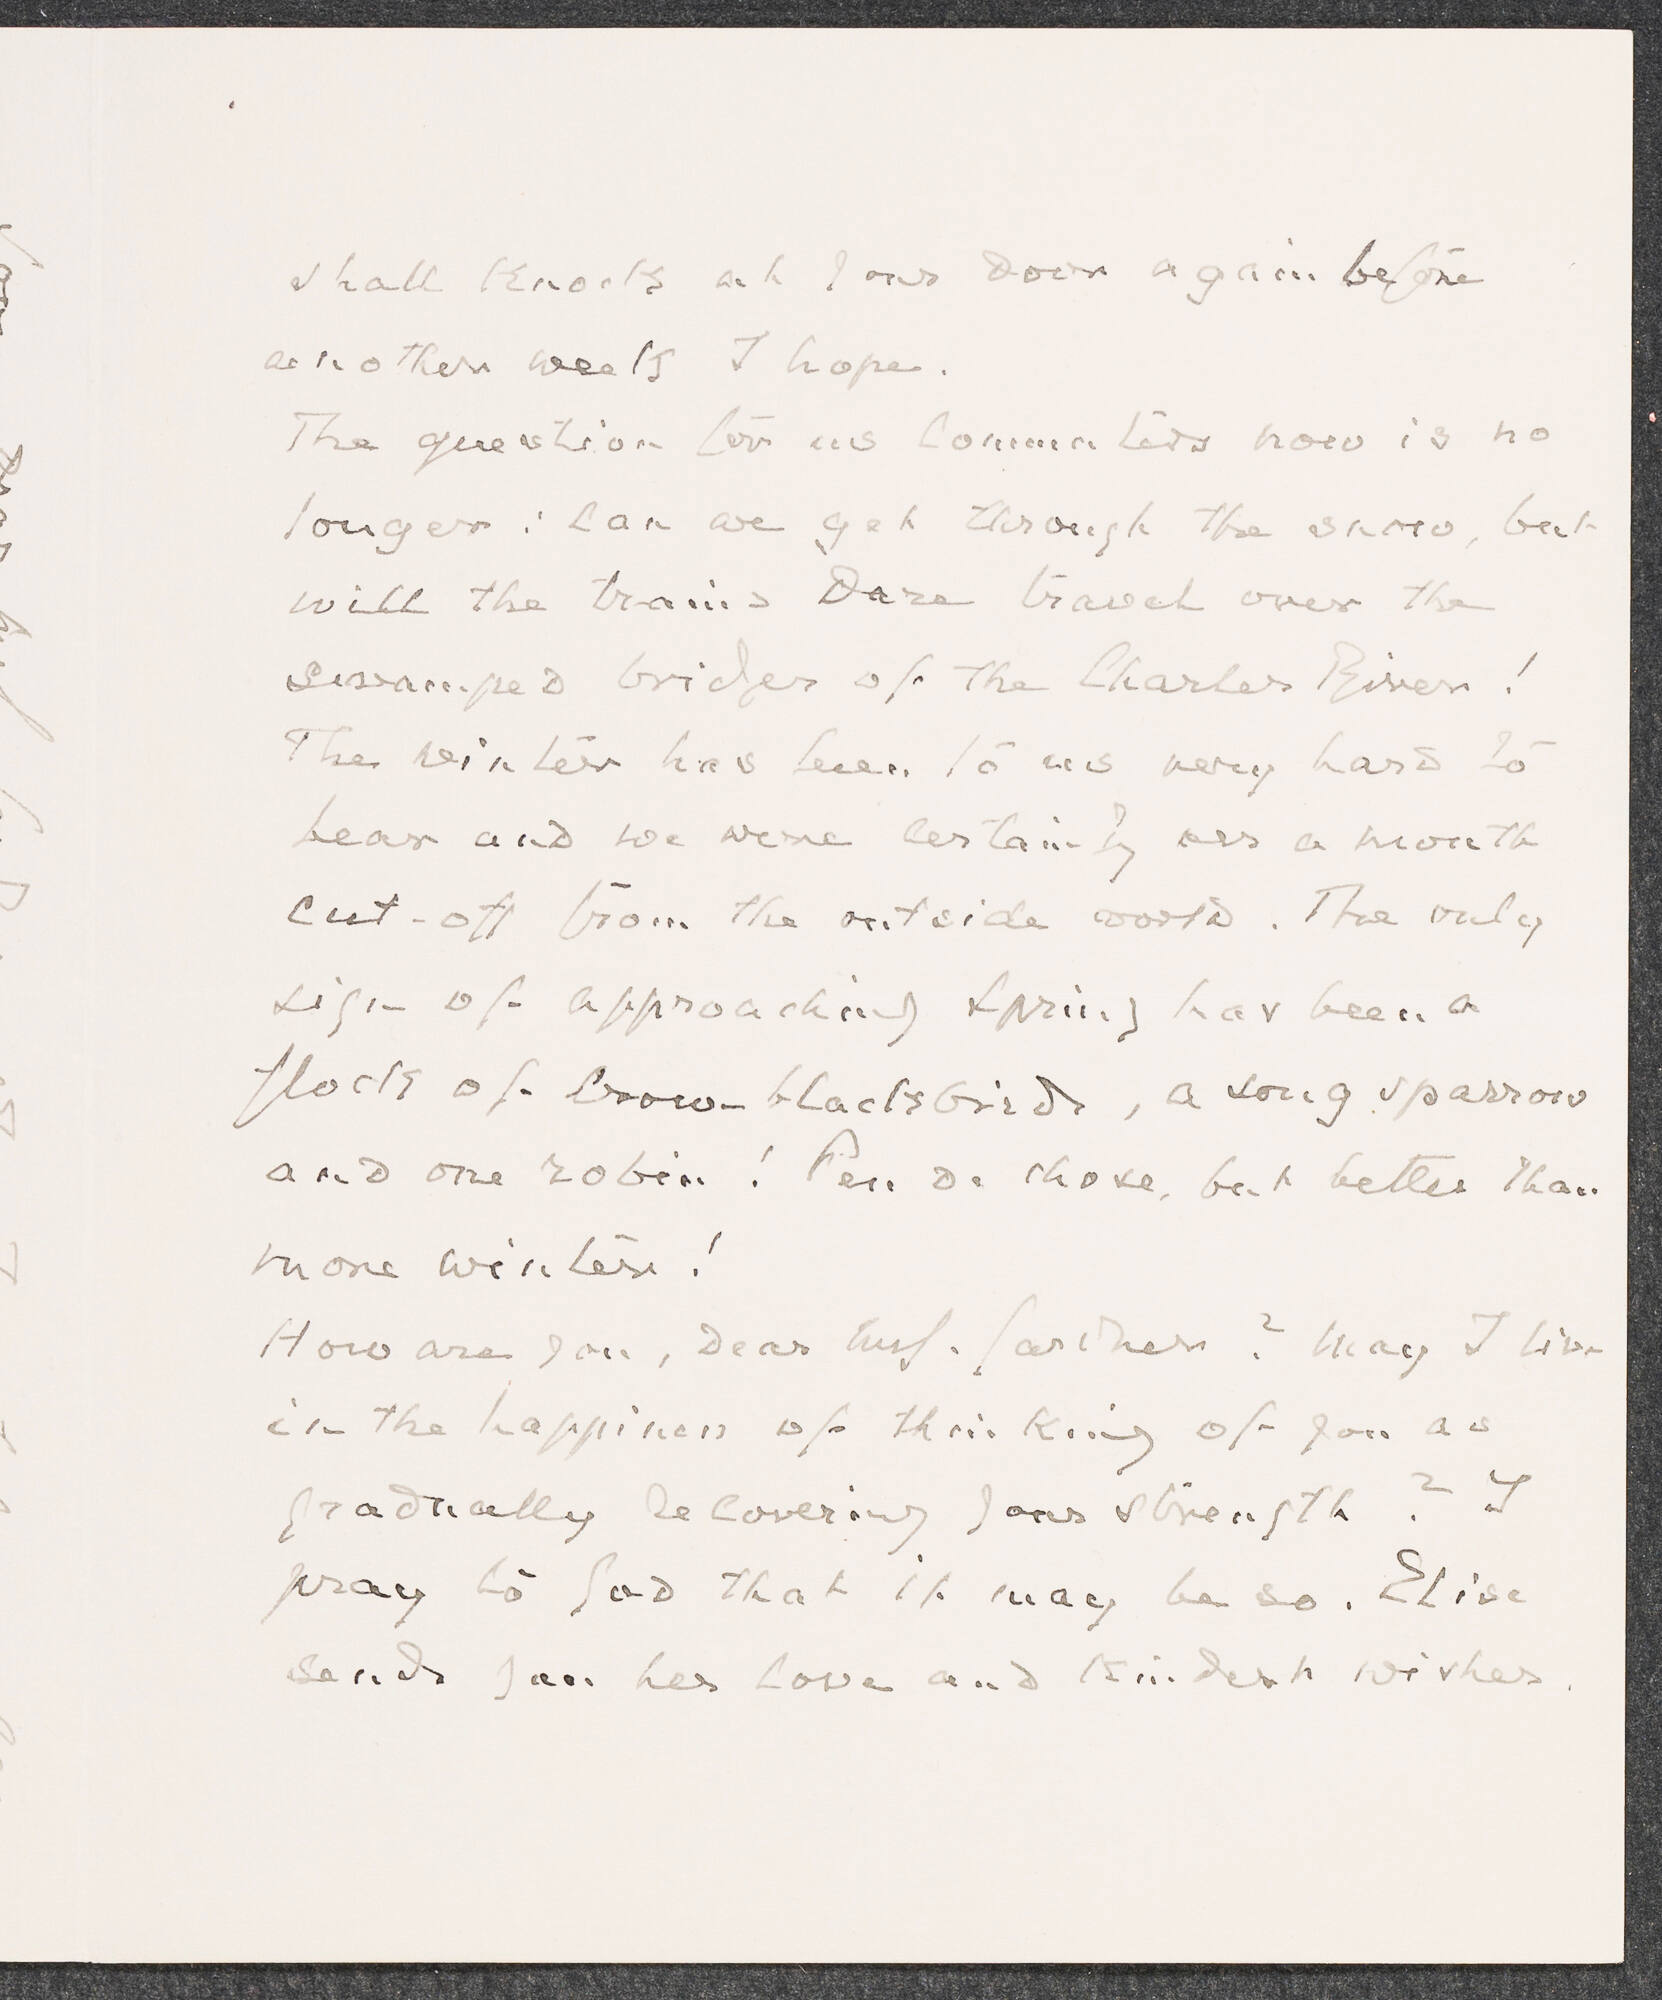 shall knock at your door again before
another week I hope.
The question for us commuters now is no
longer: can we get through the snow, but
will the trains dare travel over the
swamped bridges of the Charles River!
The winter has been to us very hard to
bear and we were certainly a month
cut-off from the outside world. The only
sign of approaching spring has been a
flock of crow-blackbirds, a song sparrow
and one robin! Peu de chose, but better than
more winter!
How are you, dear Mrs. Gardner? May I live
in the happiness of thinking of you as
gradually recovering your strength? I
pray to God that it may be so. Elise
sends you her love and kindest wishes.